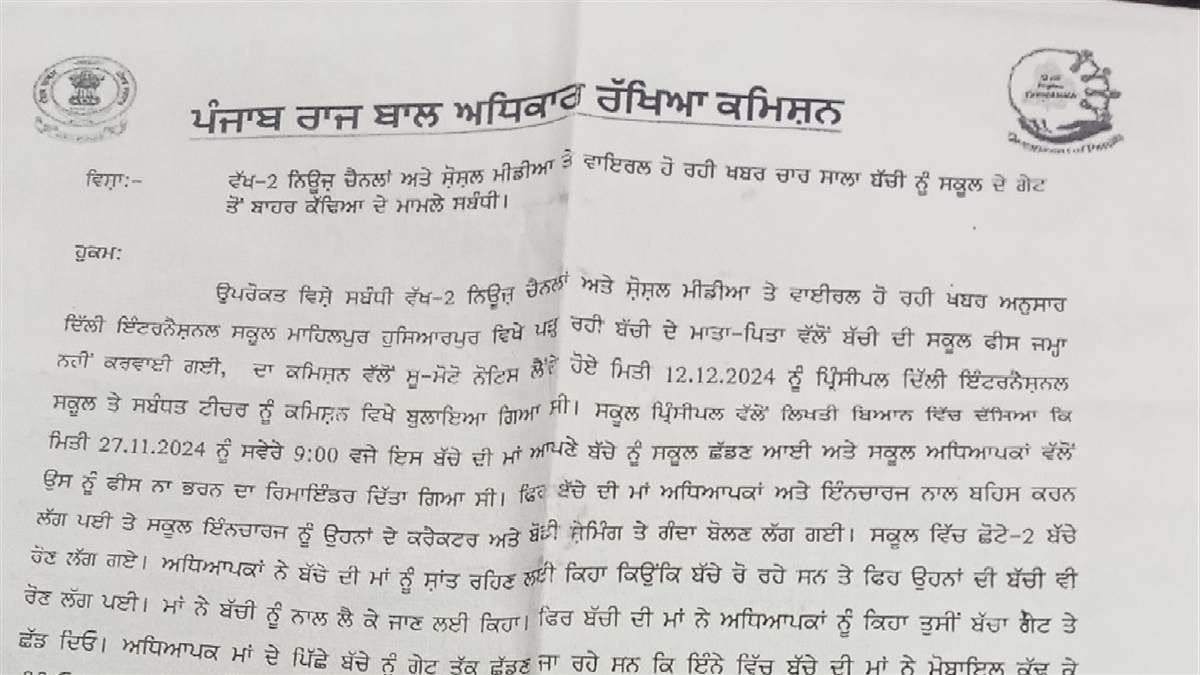 ਪੰਜਾਬ ਰਾਜ ਬਾਲ ਅਧਿਕਾਰ ਰੱਖਿਆ ਕਮਿਸ਼ਨ
ਵਿਸ਼ਾ:- ਵੱਖ-2 ਨਿਊਜ਼ ਚੈਨਲਾਂ ਅਤੇ ਸ਼ੋਸ਼ਲ ਮੀਡੀਆ ਤੇ ਵਾਇਰਲ ਹੋ ਰਹੀ ਖਬਰ ਚਾਰ ਸਾਲਾ ਬੱਚੀ ਨੂੰ ਸਕੂਲ ਦੇ ਗੇਟ
ਤੋਂ ਬਾਹਰ ਕੱਢਿਆ ਦੇ ਮਾਮਲੇ ਸਬੰਧੀ।
ਹੁਕਮ:
ਉਪਰੋਕਤ ਵਿਸ਼ੇ ਸਬੰਧੀ ਵੱਖ-2 ਨਿਊਜ਼ ਚੈਨਲਾਂ ਅਤੇ ਸ਼ੋਸ਼ਲ ਮੀਡੀਆ ਤੇ ਵਾਈਰਲ ਹੋ ਰਹੀ ਖਬਰ ਅਨੁਸਾਰ
ਦਿੱਲੀ ਇੰਟਰਨੈਸ਼ਨਲ ਸਕੂਲ ਮਾਹਿਲਪੁਰ ਹੁਸਿਆਰਪੁਰ ਵਿਖੇ ਪੜ੍ਹ ਰਹੀ ਬੱਚੀ ਦੇ ਮਾਤਾ-ਪਿਤਾ ਵੱਲੋਂ ਬੱਚੀ ਦੀ ਸਕੂਲ ਫੀਸ ਜਮ੍ਹਾ
ਨਹੀਂ ਕਰਵਾਈ ਗਈ, ਦਾ ਕਮਿਸ਼ਨ ਵੱਲੋਂ ਸੂ-ਮੋਟੋ ਨੋਟਿਸ ਲੈਂਦੇ ਹੋਏ ਮਿਤੀ 12.12.2024 ਨੂੰ ਪ੍ਰਿੰਸੀਪਲ ਦਿੱਲੀ ਇੰਟਰਨੈਸ਼ਨਲ
ਸਕੂਲ ਤੇ ਸਬੰਧਤ ਟੀਚਰ ਨੂੰ ਕਮਿਸ਼ਨ ਵਿਖੇ ਬੁਲਾਇਆ ਗਿਆ ਸੀ। ਸਕੂਲ ਪ੍ਰਿੰਸੀਪਲ ਵੱਲੋਂ ਲਿਖਤੀ ਬਿਆਨ ਵਿੱਚ ਦੱਸਿਆ ਕਿ
ਮਿਤੀ 27.11.2024 ਨੂੰ ਸਵੇਰੇ 9:00 ਵਜੇ ਇਸ ਬੱਚੇ ਦੀ ਮਾਂ ਆਪਣੇ ਬੱਚੇ ਨੂੰ ਸਕੂਲ ਛੱਡਣ ਆਈ ਅਤੇ ਸਕੂਲ ਅਧਿਆਪਕਾਂ ਵੱਲੋਂ
ਉਸ ਨੂੰ ਫੀਸ ਨਾ ਭਰਨ ਦਾ ਰਿਮਾਇੰਡਰ ਦਿੱਤਾ ਗਿਆ ਸੀ। ਫਿਰ ਬੱਚੇ ਦੀ ਮਾਂ ਅਧਿਆਪਕਾਂ ਅਤੇ ਇੰਨਚਾਰਜ ਨਾਲ ਬਹਿਸ ਕਹਨ
ਲੱਗ ਪਈ ਤੇ ਸਕੂਲ ਇੰਨਚਾਰਜ ਨੂੰ ਉਹਨਾਂ ਦੇ ਕਰੈਕਟਰ ਅਤੇ ਬੋਡੀ ਸ਼ੇਮਿੰਗ ਤੇ ਗੰਦਾ ਬੋਲਣ ਲੱਗ ਗਈ। ਸਕੂਲ ਵਿੱਚ ਛੋਟੇ-2 ਬੱਚੇ
ਰੋਣ ਲੱਗ ਗਏ। ਅਧਿਆਪਕਾਂ ਨੇ ਬੱਚੇ ਦੀ ਮਾਂ ਨੂੰ ਸ਼ਾਂਤ ਰਹਿਣ ਲਈ ਕਿਹਾ ਕਿਉਂਕਿ ਬੱਚੇ ਰੋ ਰਹੇ ਸਨ ਤੇ ਫਿਰ ਉਹਨਾਂ ਦੀ ਬੱਚੀ ਵੀ
ਰੋਣ ਲੱਗ ਪਈ। ਮਾਂ ਨੇ ਬੱਚੀ ਨੂੰ ਨਾਲ ਲੈ ਕੇ ਜਾਣ ਲਈ ਕਿਹਾ। ਫਿਰ ਬੱਚੀ ਦੀ ਮਾਂ ਨੇ ਅਧਿਆਪਕਾਂ ਨੂੰ ਕਿਹਾ ਤੁਸੀਂ ਬੱਚਾ ਗੇਟ ਤੇ
ਛੱਡ ਦਿਓ। ਅਧਿਆਪਕ ਮਾਂ ਦੇ ਪਿੱਛੇ ਬੱਚੇ ਨੂੰ ਗੇਟ ਤੱਕ ਛੱਡਣ ਜਾ ਰਹੇ ਸਨ ਕਿ ਇੰਨੇ ਵਿੱਚ ਬੱਚੇ ਦੀ ਮਾਂ ਨੇ ਮੋਬਾਇਲ ਕੱਢ ਕੇ